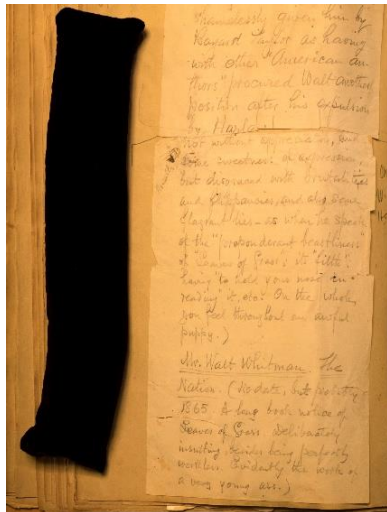 shamelessly given him by
Bayard Taylor as having
with other "American au-
thors" procured Walt another
position after his expulsion
by Harlan.
Not without appreciation, and
some sweetness of expression,
but diversed with brutalities
and flippancies, and also some
flagrant lies — as when he speaks
of the "preponderant beastliness"
of "Leaves of Grass"; its "filth";
having "to hold your nose" in
reading it, etc. On the whole
you feel throughout an awful
puppy.)
Mr. Walt Whitman. The
Nation. (No date, but probably
1865. A long book notice of
Leaves of Grass. Deliberately
insulting besides being perfectly
worthless. Evidently the work of
a very young ass.)